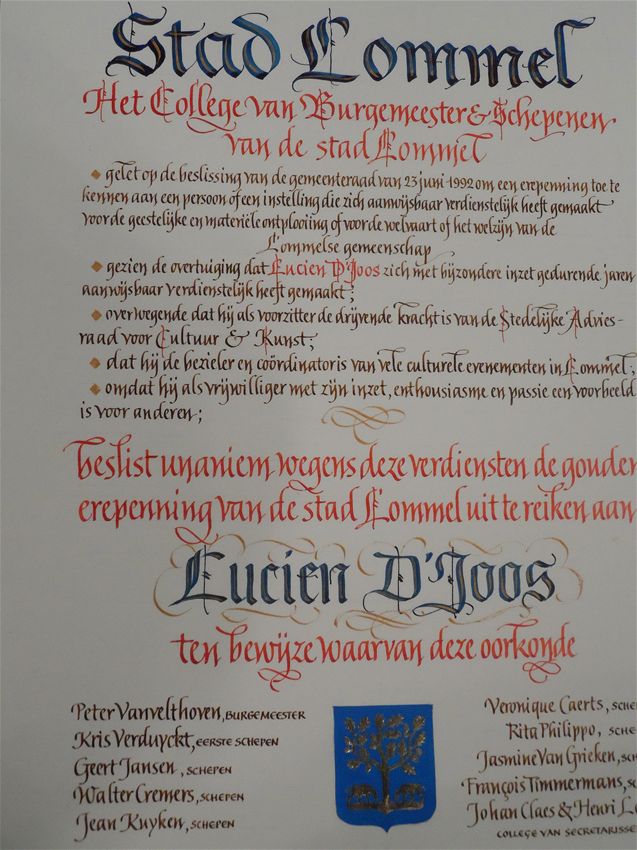 Stad Lommel
Het College van Burgemeester & Schepenen
van de stad Lommel
gelet op de beslissing van de gemeenteraad van 23 juni 1992 om een erepenning toe te
kennen aan een persoon of een instelling die zich aanwijsbaar verdienstelijk heeft gemaakt
voor de geestelijke en materiële ontplooiing of voor de welvaart of het welzijn van de
Lommelse gemeenschap
gezien de overtuiging dat Lucien D'Joos zich met bijzondere inzet gedurende jaren
aanwijsbaar verdienstelijk heeft gemaakt;
overwegende dat hij als voorzitter de drijvende kracht is van de Stedelijke Advies-
raad voor Cultuur & Kunst;
dat hij de bezieler en coördinator is van vele culturele evenementen in Lommel;
omdat hij als vrijwilliger met zijn inzet, enthousiasme en passie een voorbeeld
is voor anderen;
beslist unaniem wegens deze verdiensten de gouden
erepenning van de stad Lommel uit te reiken aan
Lucien D'Joos
ten bewijze waarvan deze oorkonde
Peter Vanvelthoven, BURGEMEESTER
Kris Verduyckt, EERSTE SCHEPEN
Geert Jansen, SCHEPEN
Walter Cremers, SCHEPEN
Jean Kuyken, SCHEPEN
Veronique Caerts,
Rita Philippo,
Jasmine Van Grieken,
François Timmermans,
Johan Claes & Henri
COLLEGE VAN SECRETARISSE